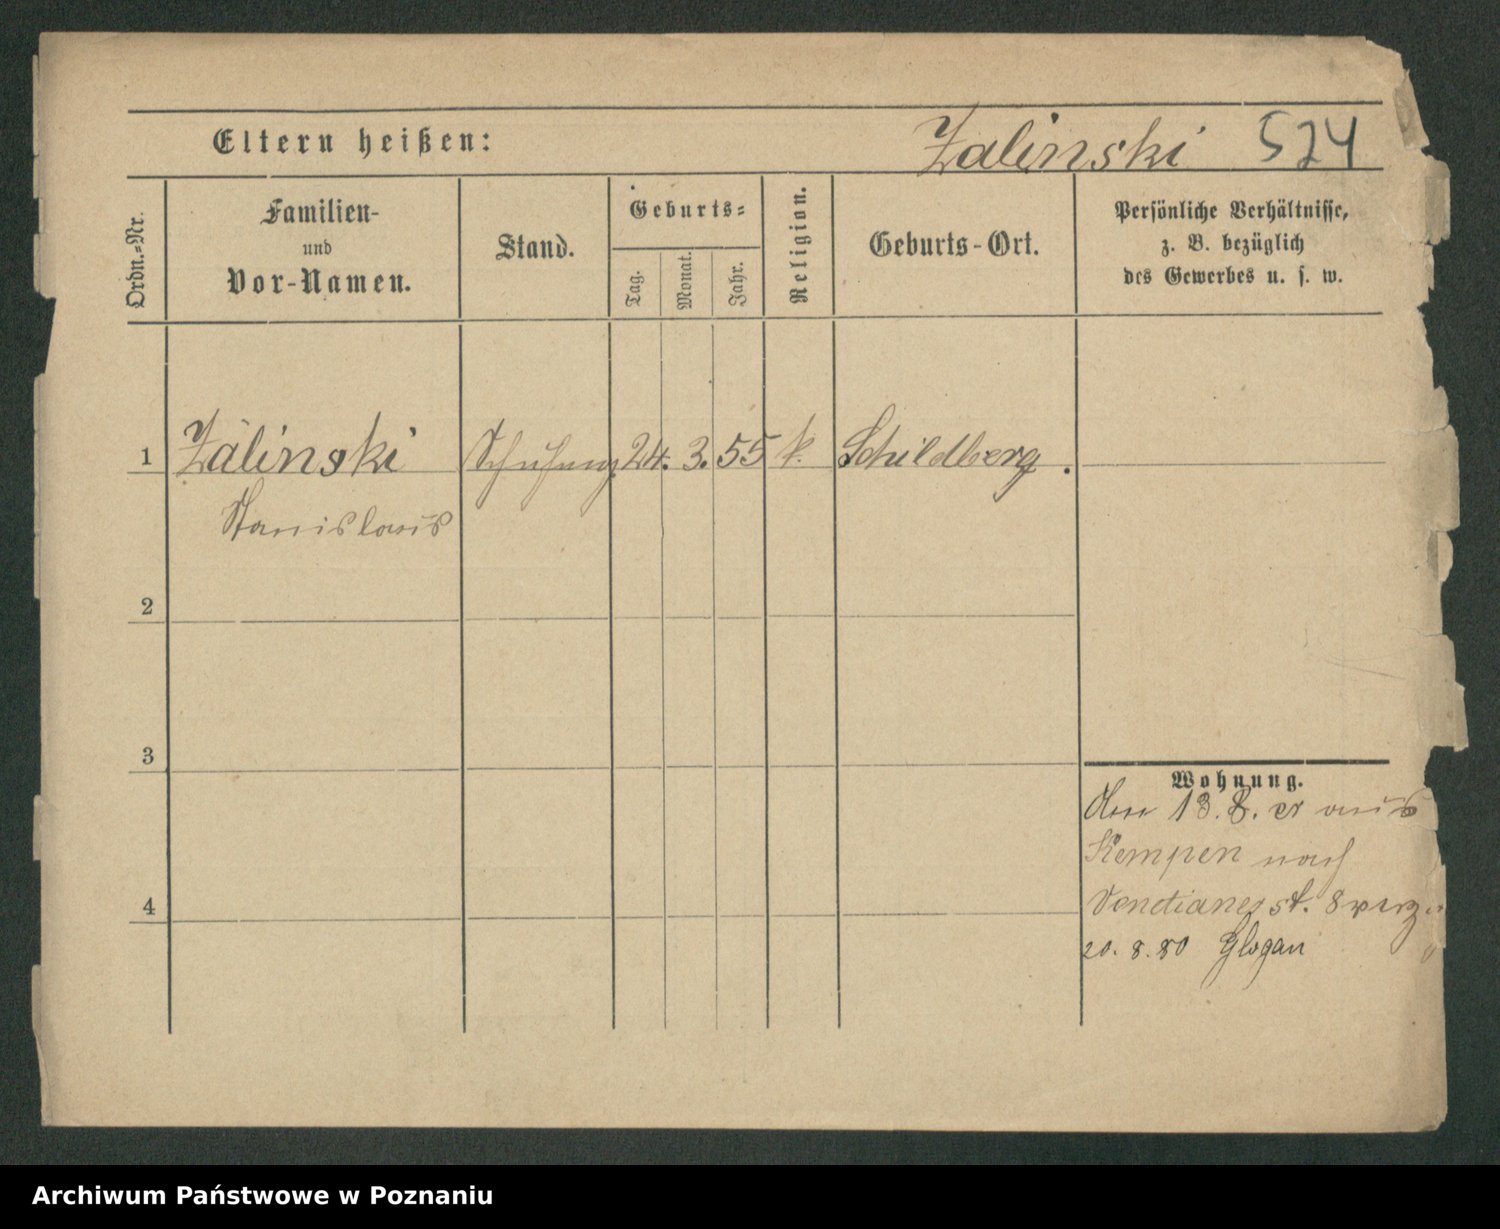 Eltern heißen:
Zalinski 524
Ordn.=Nr.
Familien-
und
Vor-Namen.
Stand.
Geburts=
Tag.
Monat.
Jahr.
Religion.
Geburts-Ort.
Persönliche Verhältnisse,
z. B. bezüglich
des Gewerbes u. s. w.
1 Zalinski 24. 3. 55 k. Schildberg.
Stanislaus
2
3
4
Wohnung.
Am 13. 8. er aus
Kempen nach
Venetianerst. 8
20. 8. 80 Glogau
Archiwum Państwowe w Poznaniu